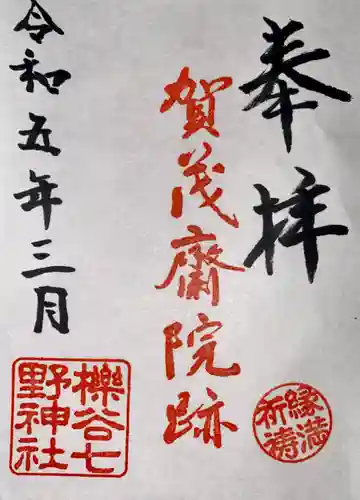 奉拝
賀茂齋院跡
縁満
祈祷
令和五年三月
櫟谷七
野神社